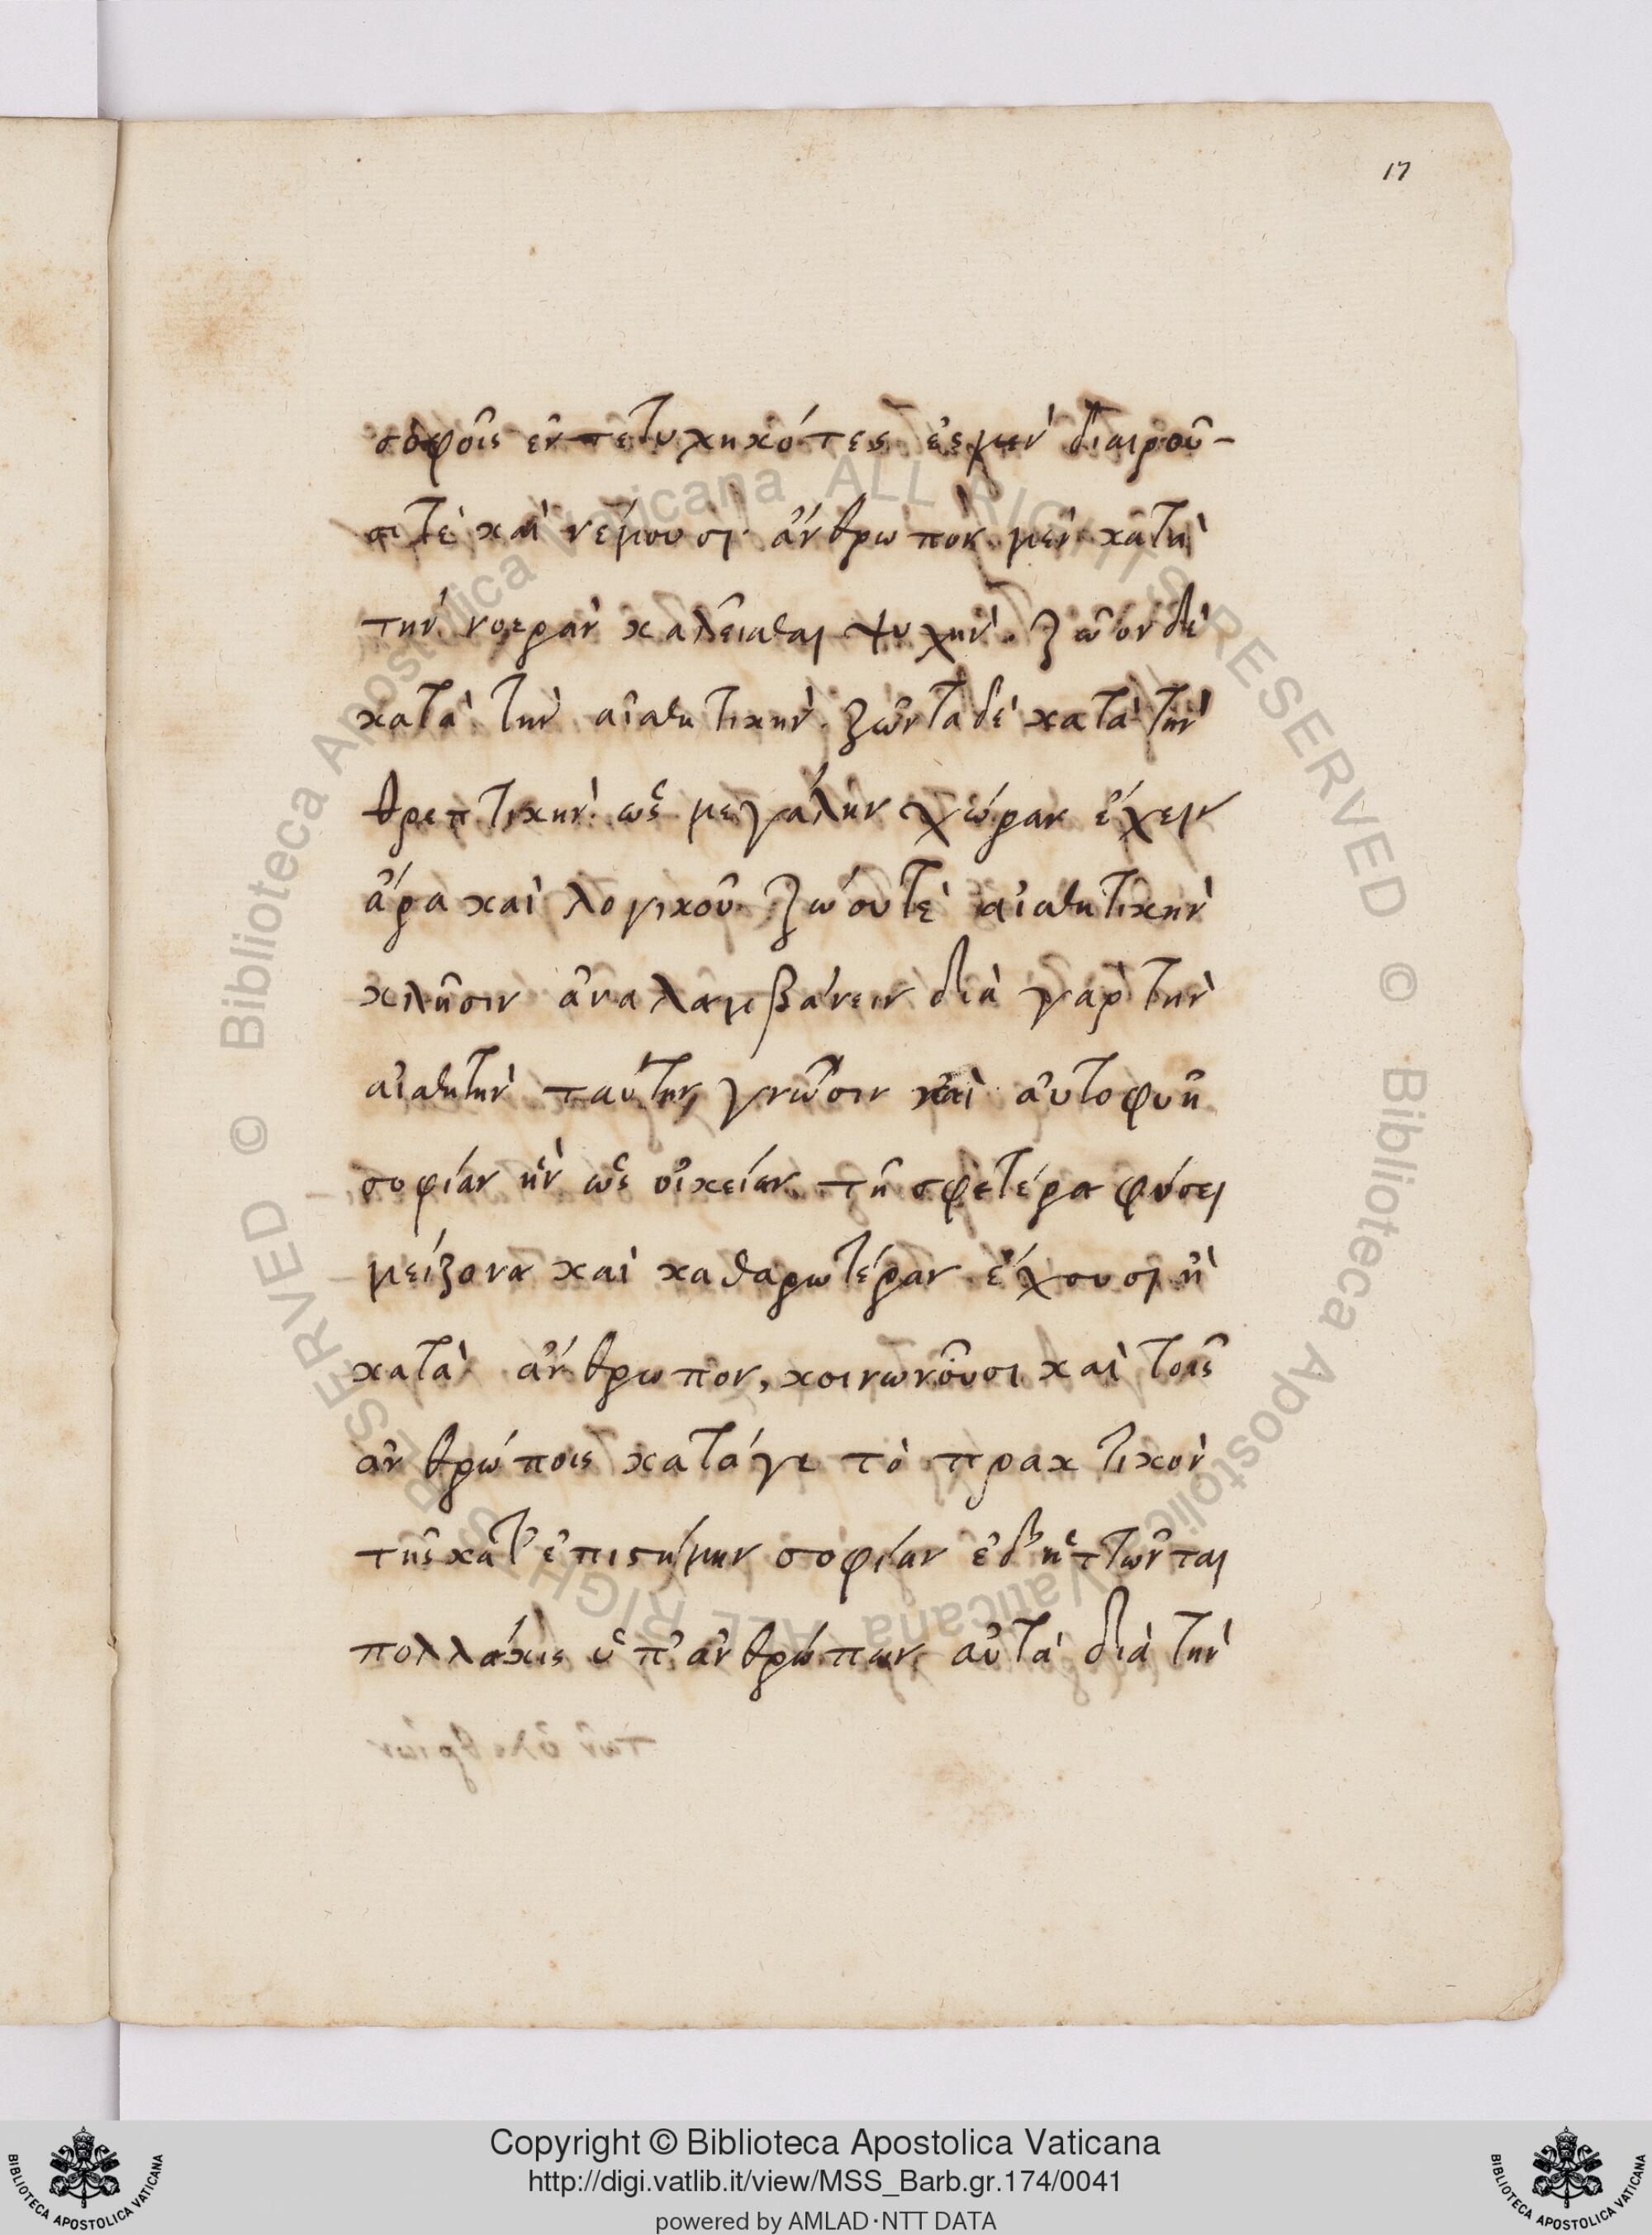 17
σοφοῖς ἐντετυχηκότες ἐς μὲν διαιροῦ-
σι τὲ καὶ νέμουσι· ἄνθρωπον μὲν κατὰ
τὴν νοερὰν καλεῖσθαι ψυχὴν. ζῶον δὲ
κατὰ τὴν αἰσθητικὴν. ζῶντα δὲ κατὰ τὴν
θρεπτικὴν. ὡς μεγάλην χώραν ἔχειν
ἄρα καὶ λογικοῦ ζώου τὲ αἰσθητικὴν
κλῆσιν ἀναλαμβάνειν διὰ γὰρ τὴν
αἰσθητὴν ταύτην γνῶσιν καὶ αὐτοφυῆ
σοφίαν ἣν ὡς οἰκείαν τῆ σφετέρα φύσει
μείζονα καὶ καθαρωτέραν ἔχουσι ἢ
κατὰ ἄνθρωπον, κοινωνοῦσι καὶ τοῖς
ἀνθρώποις κατάγε τὸ πρακτικὸν
τῆς κατ' ἐπιστήμην σοφίαν ἐδ' ἡττῶνται
πολλάκις ὑπ' ἀνθρώπων αὐτὰ διὰ τὴν
Copyright © Biblioteca Apostolica Vaticana
http://digi.vatlib.it/view/MSS_Barb.gr.174/0041
powered by AMLAD·NTT DATA
BIBLIOTECA APOSTOLICA VATICANA
BIBLIOTECA APOSTOLICA VATICANA
© Biblioteca Apostolica Vaticana ALL RIGHTS RESERVED © Biblioteca Apostolica Vaticana ALL RIGHTS RESERVED